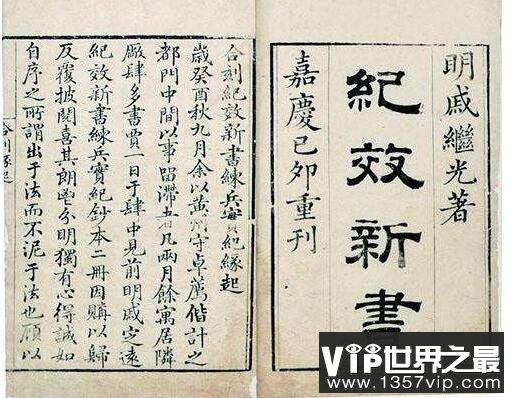 明戚繼光著
紀效新書
嘉慶己卯重刊
合刻紀效新書練兵實紀緣起
歲癸酉秋九月余以黃州守卓薦偕計之
都門中間以事留滯者凡兩月餘寓居隣
厰肆多書賈一日于肆中見前明戚定遠
紀效新書練兵實紀鈔本二冊因購以歸
反覆披閱喜其朗鬯分明獨有心得誠如
自序之所謂出于法而不泥于法也顧以
合刊緣起
VIP世界之最
www.1357vip.com